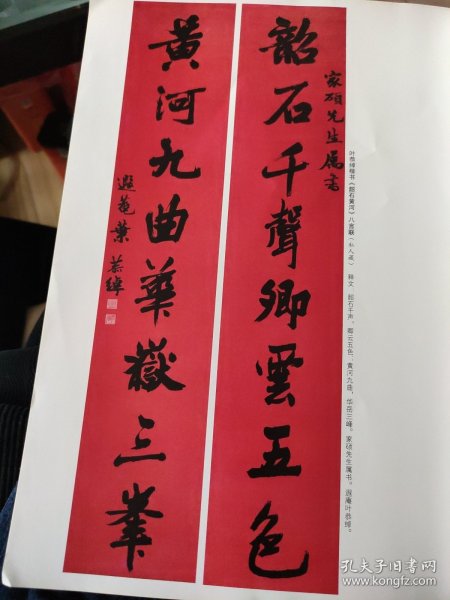 韶石千聲卿雲五色
家碩先生属書
黄河九曲華嶽三峯
遐菴葉恭綽
叶恭绰楷书《韶石黄河》八言联（私人藏） 释文：韶石千声，卿云五色；黄河九曲，华岳三峰。家硕先生属书。遐庵叶恭绰。
孔夫子旧书网
www.kongfz.com